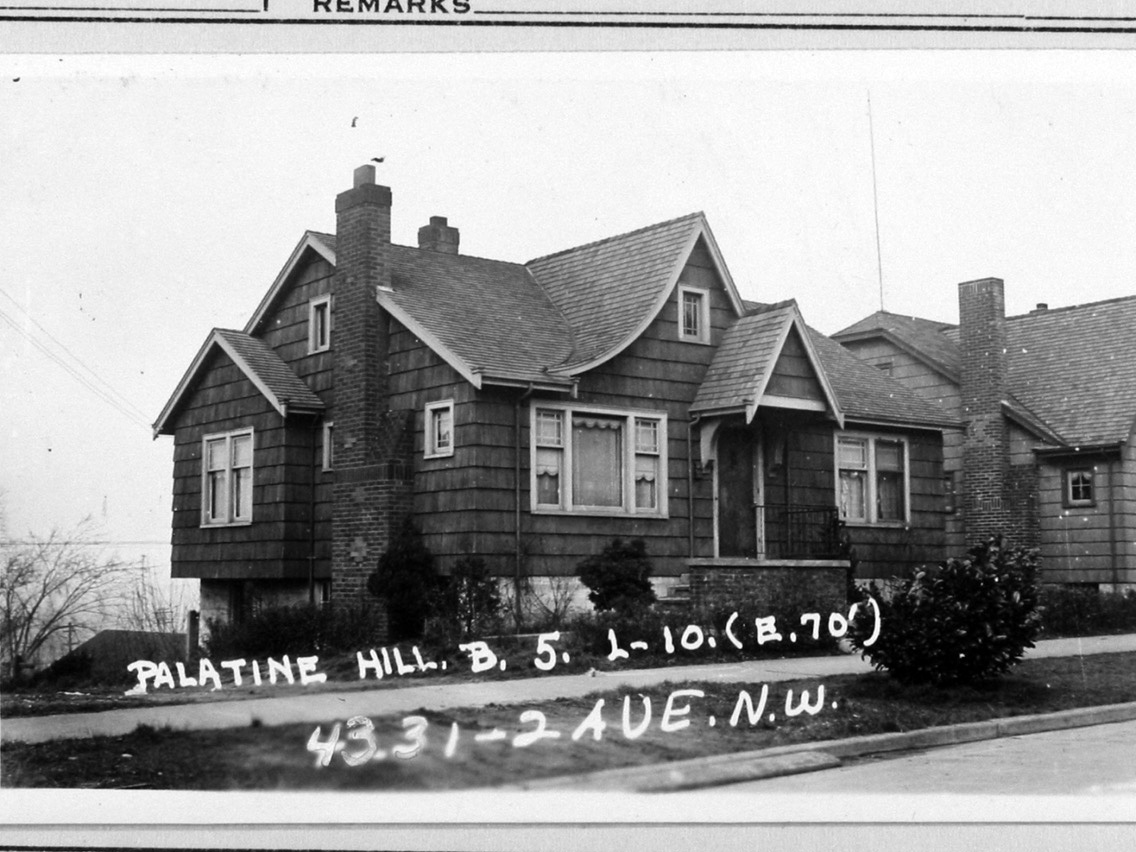 REMARKS
PALATINE HILL. B. 5. L-10. (E. 70')
4331-2 AVE. N.W.